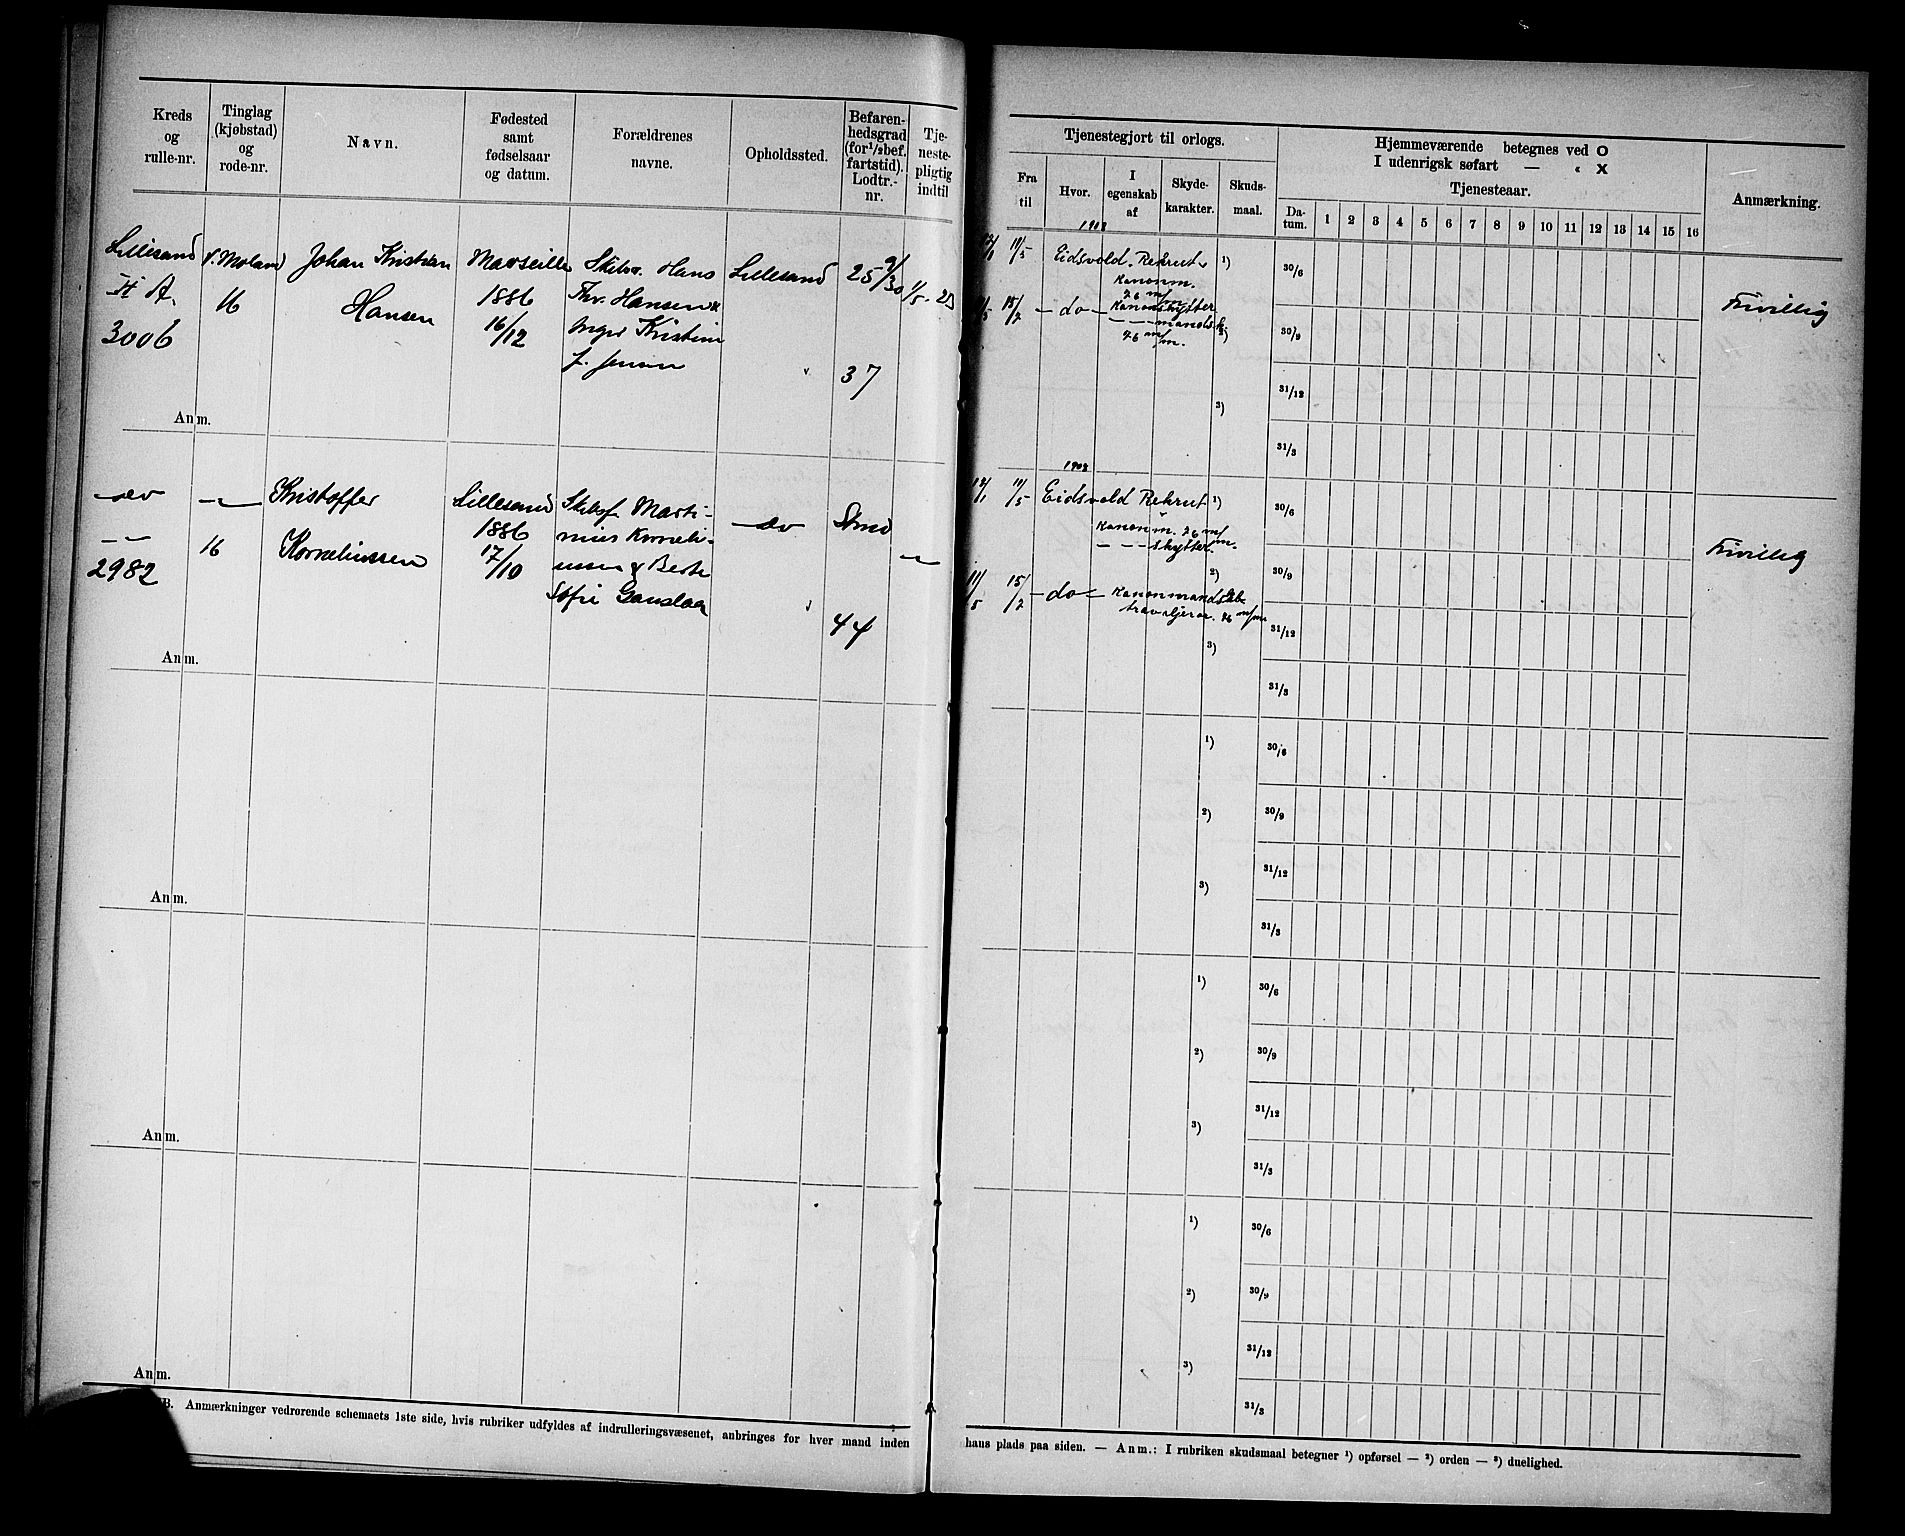 Kreds og rulle-nr.
Tinglag (kjøbstad) og rode-nr.
Navn.
Fødested samt fødselsaar og datum.
Forældrenes navne.
Opholdssted.
Befaren-hedsgrad (for 1/2 bef. fartstid). Lodtr.-nr.
Tje-neste-pligtig indtil
Lillesand
H A.
3006
V. Moland
16
Johan Kristian
Hansen
Marseille
1886
16/12
Hans
Thv. Hansen &
Inger Kristine
J. Jensen
Lillesand
25 9/30
37
Anm.
2982
16
Kristoffer
Korneliussen
Lillesand
1886
17/10
Marti-
nius Korneli-
ussen & Berte
Sofie
44
Anm.
Anm.
Anm.
Anm.
B. Anmærkninger vedrørende schemaets 1ste side, hvis rubriker udfyldes af indrulleringsvæsenet, anbringes for hver mand inden
Tjenestegjort til orlogs.
Fra til
Hvor.
I egenskab af
Skyde-karakter.
Skuds-maal.
Hjemmeværende betegnes ved O
I udenrigsk søfart — « X
Tjenesteaar.
Da-tum.
1 2 3 4 5 6 7 8 9 10 11 12 13 14 15 16
Anmærkning.
1908
11/5
Eidsvold. Rekrut. 1)
Kanonm.
76 m/m
15/7 — do — Kanonskytter
— — — mandsk. 2)
76 m/m.
3)
30/6
30/9
31/12
31/3
Frivillig
1908
11/5 Eidsvold Rekrut 1)
Kanonm. 76 m/m.
— — — skytter.
2)
11/5 15/7 — do —
travaljeror. 76 m/m
3)
30/6
30/9
31/12
31/3
Frivillig
1)
2)
3)
30/6
30/9
31/12
31/3
1)
2)
3)
30/6
30/9
31/12
31/3
1)
2)
3)
30/6
30/9
31/12
31/3
hans plads paa siden. — Anm.: I rubriken skudsmaal betegner 1) opførsel — 2) orden — 3) duelighed.